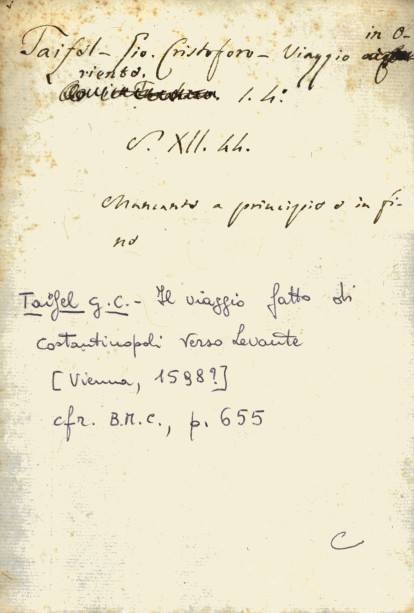 Taifel - Gio. Cristoforo - Viaggio in O-
riente. 1. 4.°
S. XII. 44.
Mancante a principio e in fi-
ne
Taifel G.C. - Il viaggio fatto di
Costantinopoli verso Levante
[Vienna, 1598?]
cfr. B.M.C., p. 655
C